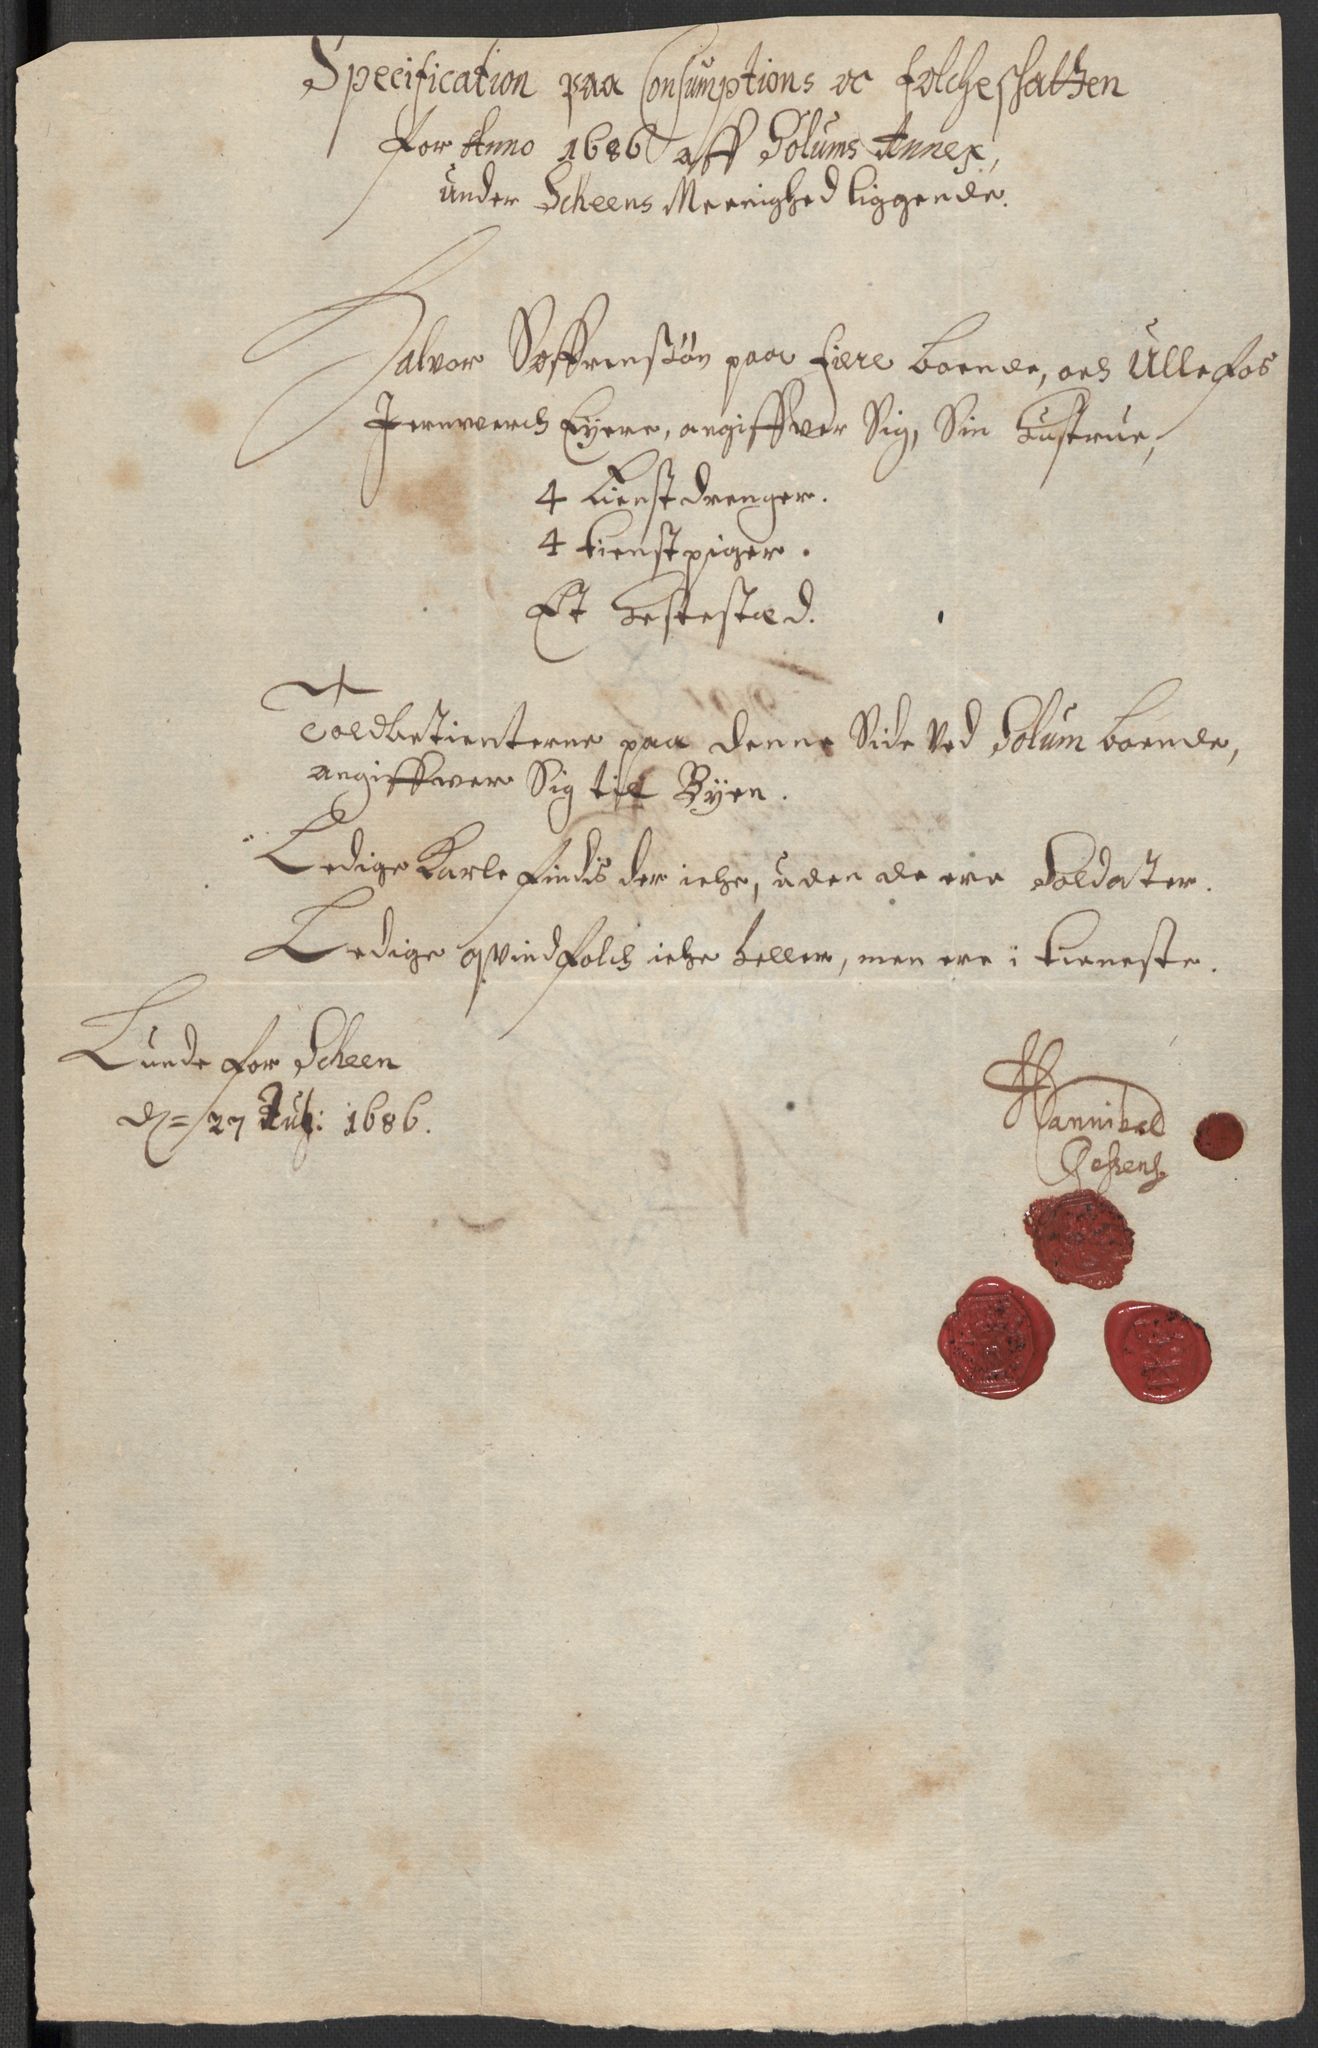 Specification paa Consumptions oc folcheschatten
for Anno 1686 aff Solums Annex,
under Scheens Meenighed liggende.
Halvor Søffrensøn paa Fiære boende, och Ullefos
Jernverch Eyere, angiffver Sig, Sin hustrue,
4 tienstdrenger.
4 tienstpiger.
Et hestestæd.
Toldbetienterne paa denne Side ved Solum boende,
angiffver Sig til Byen.
Ledige Karle findis der iche, uden de ere Soldater.
Ledige qvindfolch iche heller, men ere i tieneste.
Lunde for Scheen
d= 27 Aug: 1686.
Hannibal